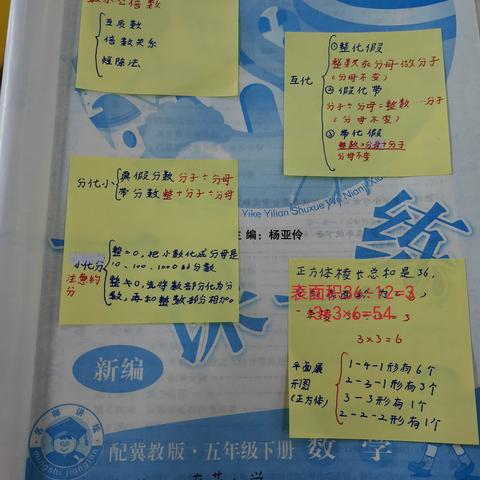 数求公倍数
互质数
倍数关系
短除法
互化
①整化假
整数乘分母做分子
(分母不变)
②假化带
分子÷分母=整数……分子
(分母不变)
③带化假
整数×分母+分子
分母不变
分化小
真假分数 分子÷分母
带分数 整+分子÷分母
小化分
注意约分
整=0,把小数化成分母是
10、100、1000的分数
整≠0,先将数部分化为分
数,再和整数部分相加。
Yike Yilian Shuxue Wu Nianji Xia
主编:杨亚伶
练
正方体棱长总和是36,
表面积36÷12=3
3×3×6=54
3×3=6
平面展
开图
(正方体)
1-4-1形有6个
2-3-1形有3个
3-3形有1个
2-2-2形有1个
新编
名师讲坛
mingshi jiangtan
配冀教版·五年级下册 数学